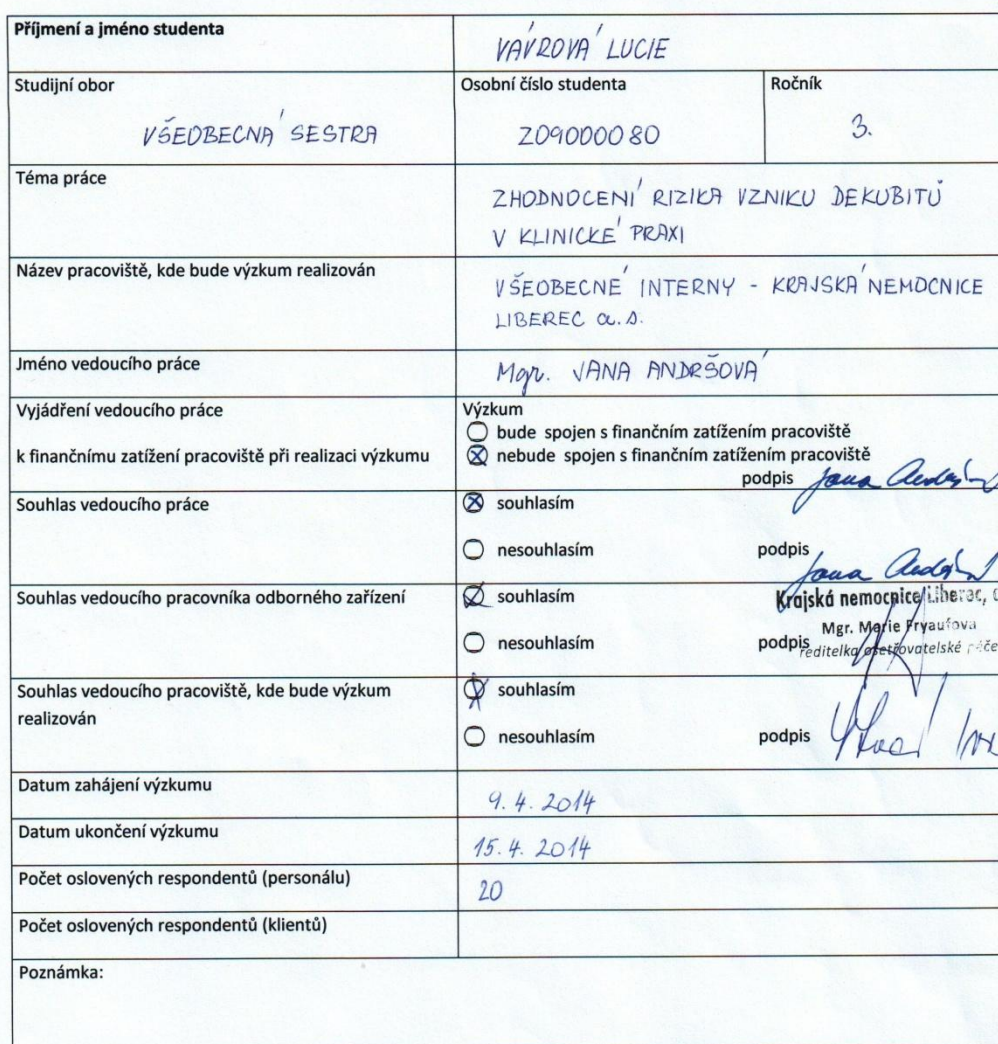 Příjmení a jméno studenta
VÁVROVÁ LUCIE
Studijní obor
VŠEOBECNÁ SESTRA
Osobní číslo studenta
Z09000080
Ročník
3.
Téma práce
ZHODNOCENÍ RIZIKA VZNIKU DEKUBITŮ
V KLINICKÉ PRAXI
Název pracoviště, kde bude výzkum realizován
VŠEOBECNÉ INTERNY - KRAJSKÁ NEMOCNICE
LIBEREC a.s.
Jméno vedoucího práce
Mgr. JANA ANDRŠOVÁ
Vyjádření vedoucího práce
k finančnímu zatížení pracoviště při realizaci výzkumu
Výzkum
bude spojen s finančním zatížením pracoviště
nebude spojen s finančním zatížením pracoviště
podpis Jana
Souhlas vedoucího práce
souhlasím
nesouhlasím
podpis Jana
Souhlas vedoucího pracovníka odborného zařízení
souhlasím
Krajská nemocnice Liberec,
Mgr. Marie Fryaufová
nesouhlasím
podpis
ředitelka ošetřovatelské péče
Souhlas vedoucího pracoviště, kde bude výzkum
realizován
souhlasím
nesouhlasím
podpis
Datum zahájení výzkumu
9.4.2014
Datum ukončení výzkumu
15.4.2014
Počet oslovených respondentů (personálu)
20
Počet oslovených respondentů (klientů)
Poznámka: